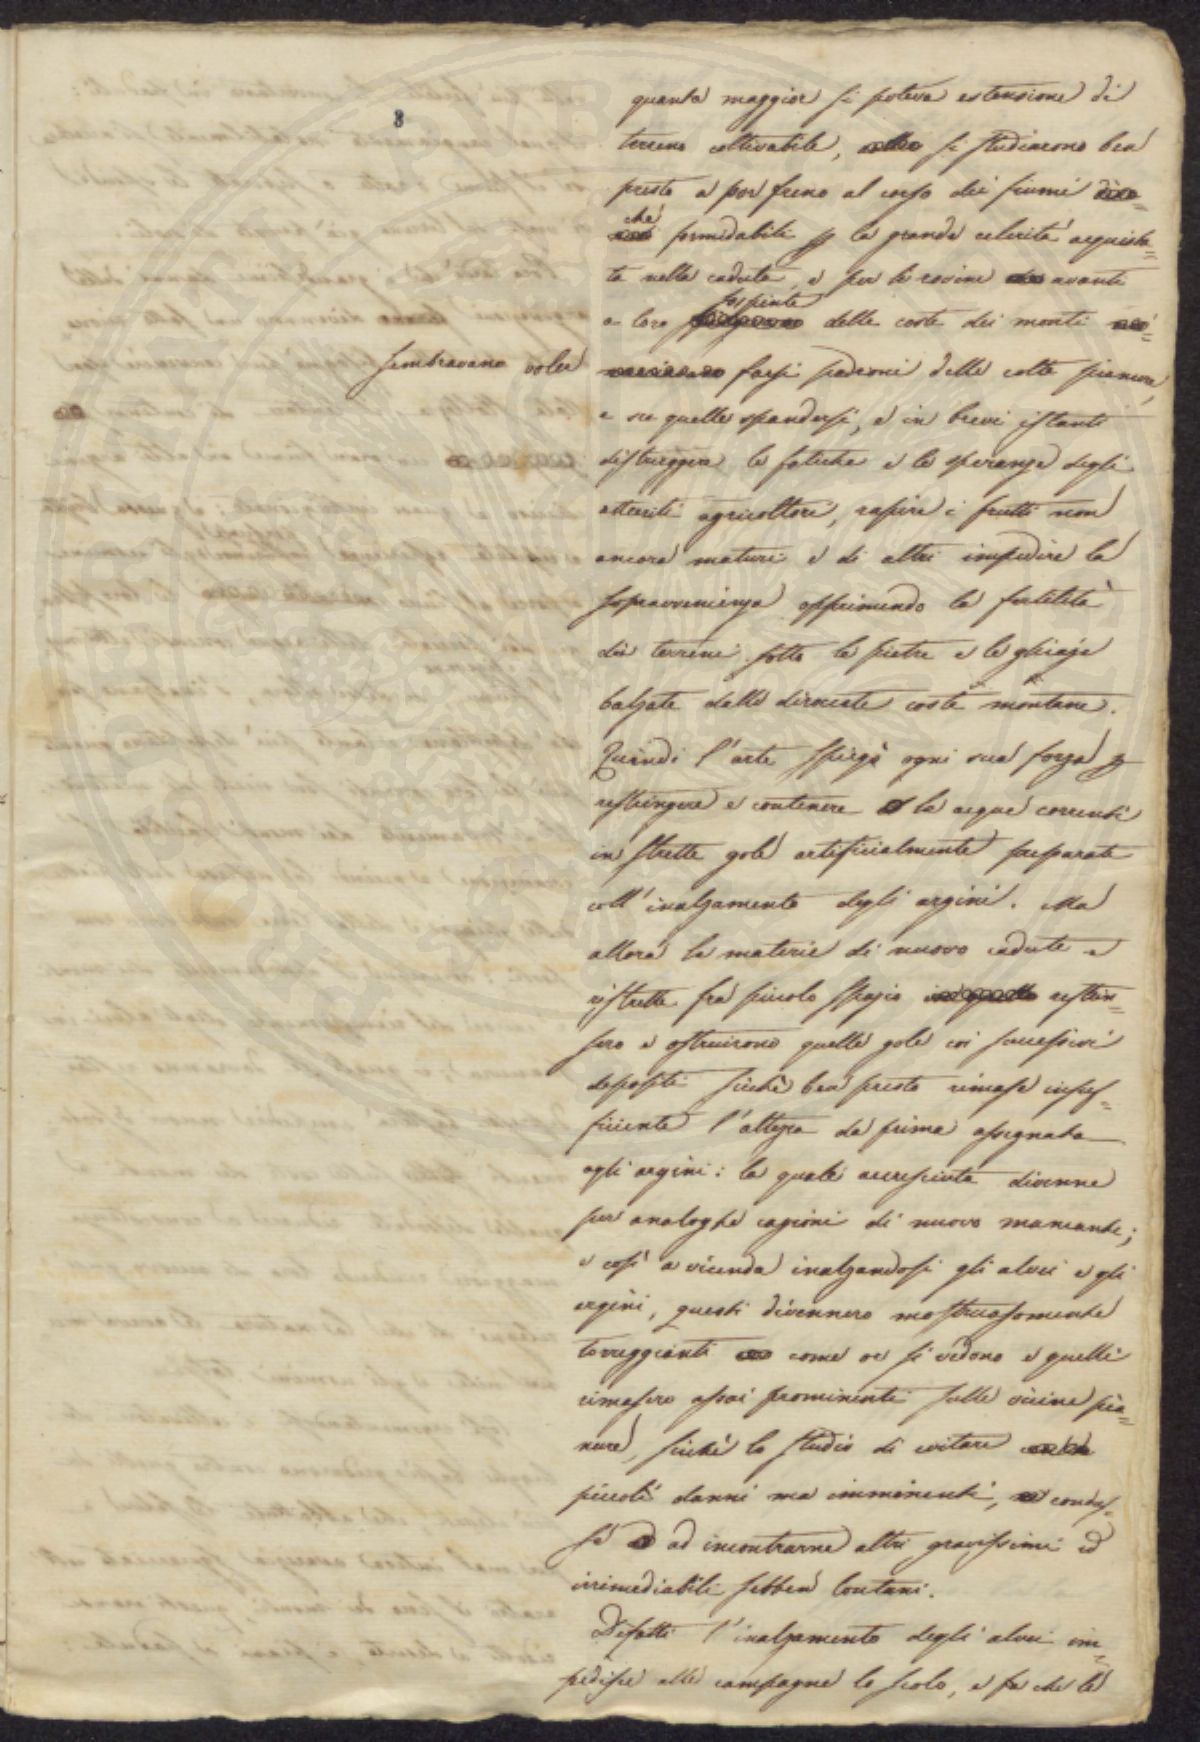 8
quanta maggior si poteva estensione di
terreno coltivabile, si studiarono ben
presto a por freno al corso dei fiumi
che
formidabili p la grande celerità acquista=
ta nella caduta, e per le rovine avante
sospinte
a loro delle coste dei monti
sembravano voler farsi padroni delle colte pianure,
e su quelle spandersi, e in brevi istanti
distruggere le fatiche e le speranze degli
atterriti agricoltori, rapire i frutti non
ancora maturi e di altri impedire la
sopravvenienza opprimendo la fertilità
dei terreni sotto le pietre e le ghiaje
balzate dalle dirociate coste montane.
Quindi l'arte spiegò ogni sua forza p
restringere e contenere le acque correnti
in strette gole artificialmente preparate
coll'inalzamento degli argini. Ma
allora le materie di nuovo cadute e
ristrette fra piccolo spazio restrin=
sero e ostruirono quelle gole coi successivi
depositi sicchè ben presto rimase insuf=
ficiente l'altezza da prima assegnata
agli argini: la quale accresciuta divenne
per analoghe cagioni di nuovo mancante;
e così a vicenda inalzandosi gli alvei e gli
argini, questi divennero mostruosamente
torreggianti come or si vedono e quelli
rimasero assai prominenti sulle vicine pia=
nure, sicchè lo studio di evitare
piccoli danni ma imminenti, condus=
se ad incontrarne altri gravissimi ed
irrimediabili sebben lontani.
Difatti l'inalzamento degli alvei im=
pedisce alle campagne lo scolo, e fa che le